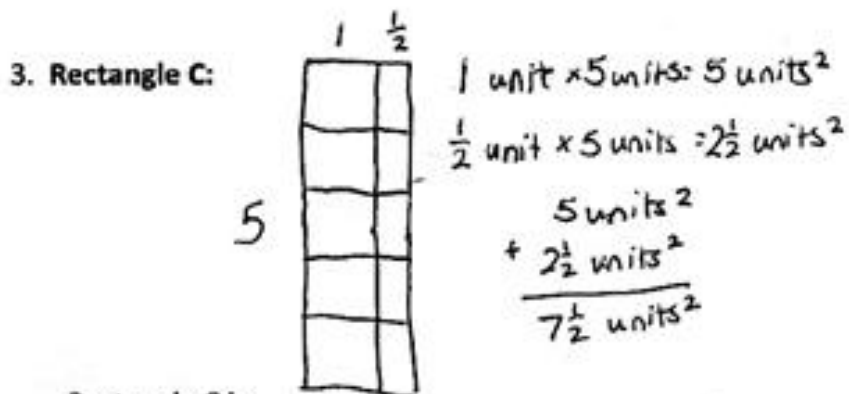 1 ½
3. Rectangle C:
1 unit × 5 units = 5 units²
½ unit × 5 units = 2½ units²
5
5 units²
+ 2½ units²
7½ units²